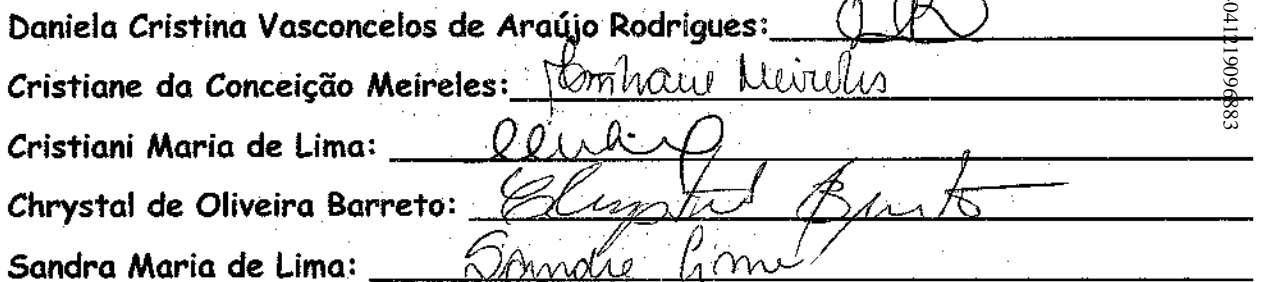 Daniela Cristina Vasconcelos de Araújo Rodrigues:
Cristiane da Conceição Meireles: Meireles
Cristiani Maria de Lima:
Chrystal de Oliveira Barreto: Chrystal Barreto
Sandra Maria de Lima: Sandra Lima
04121909096883